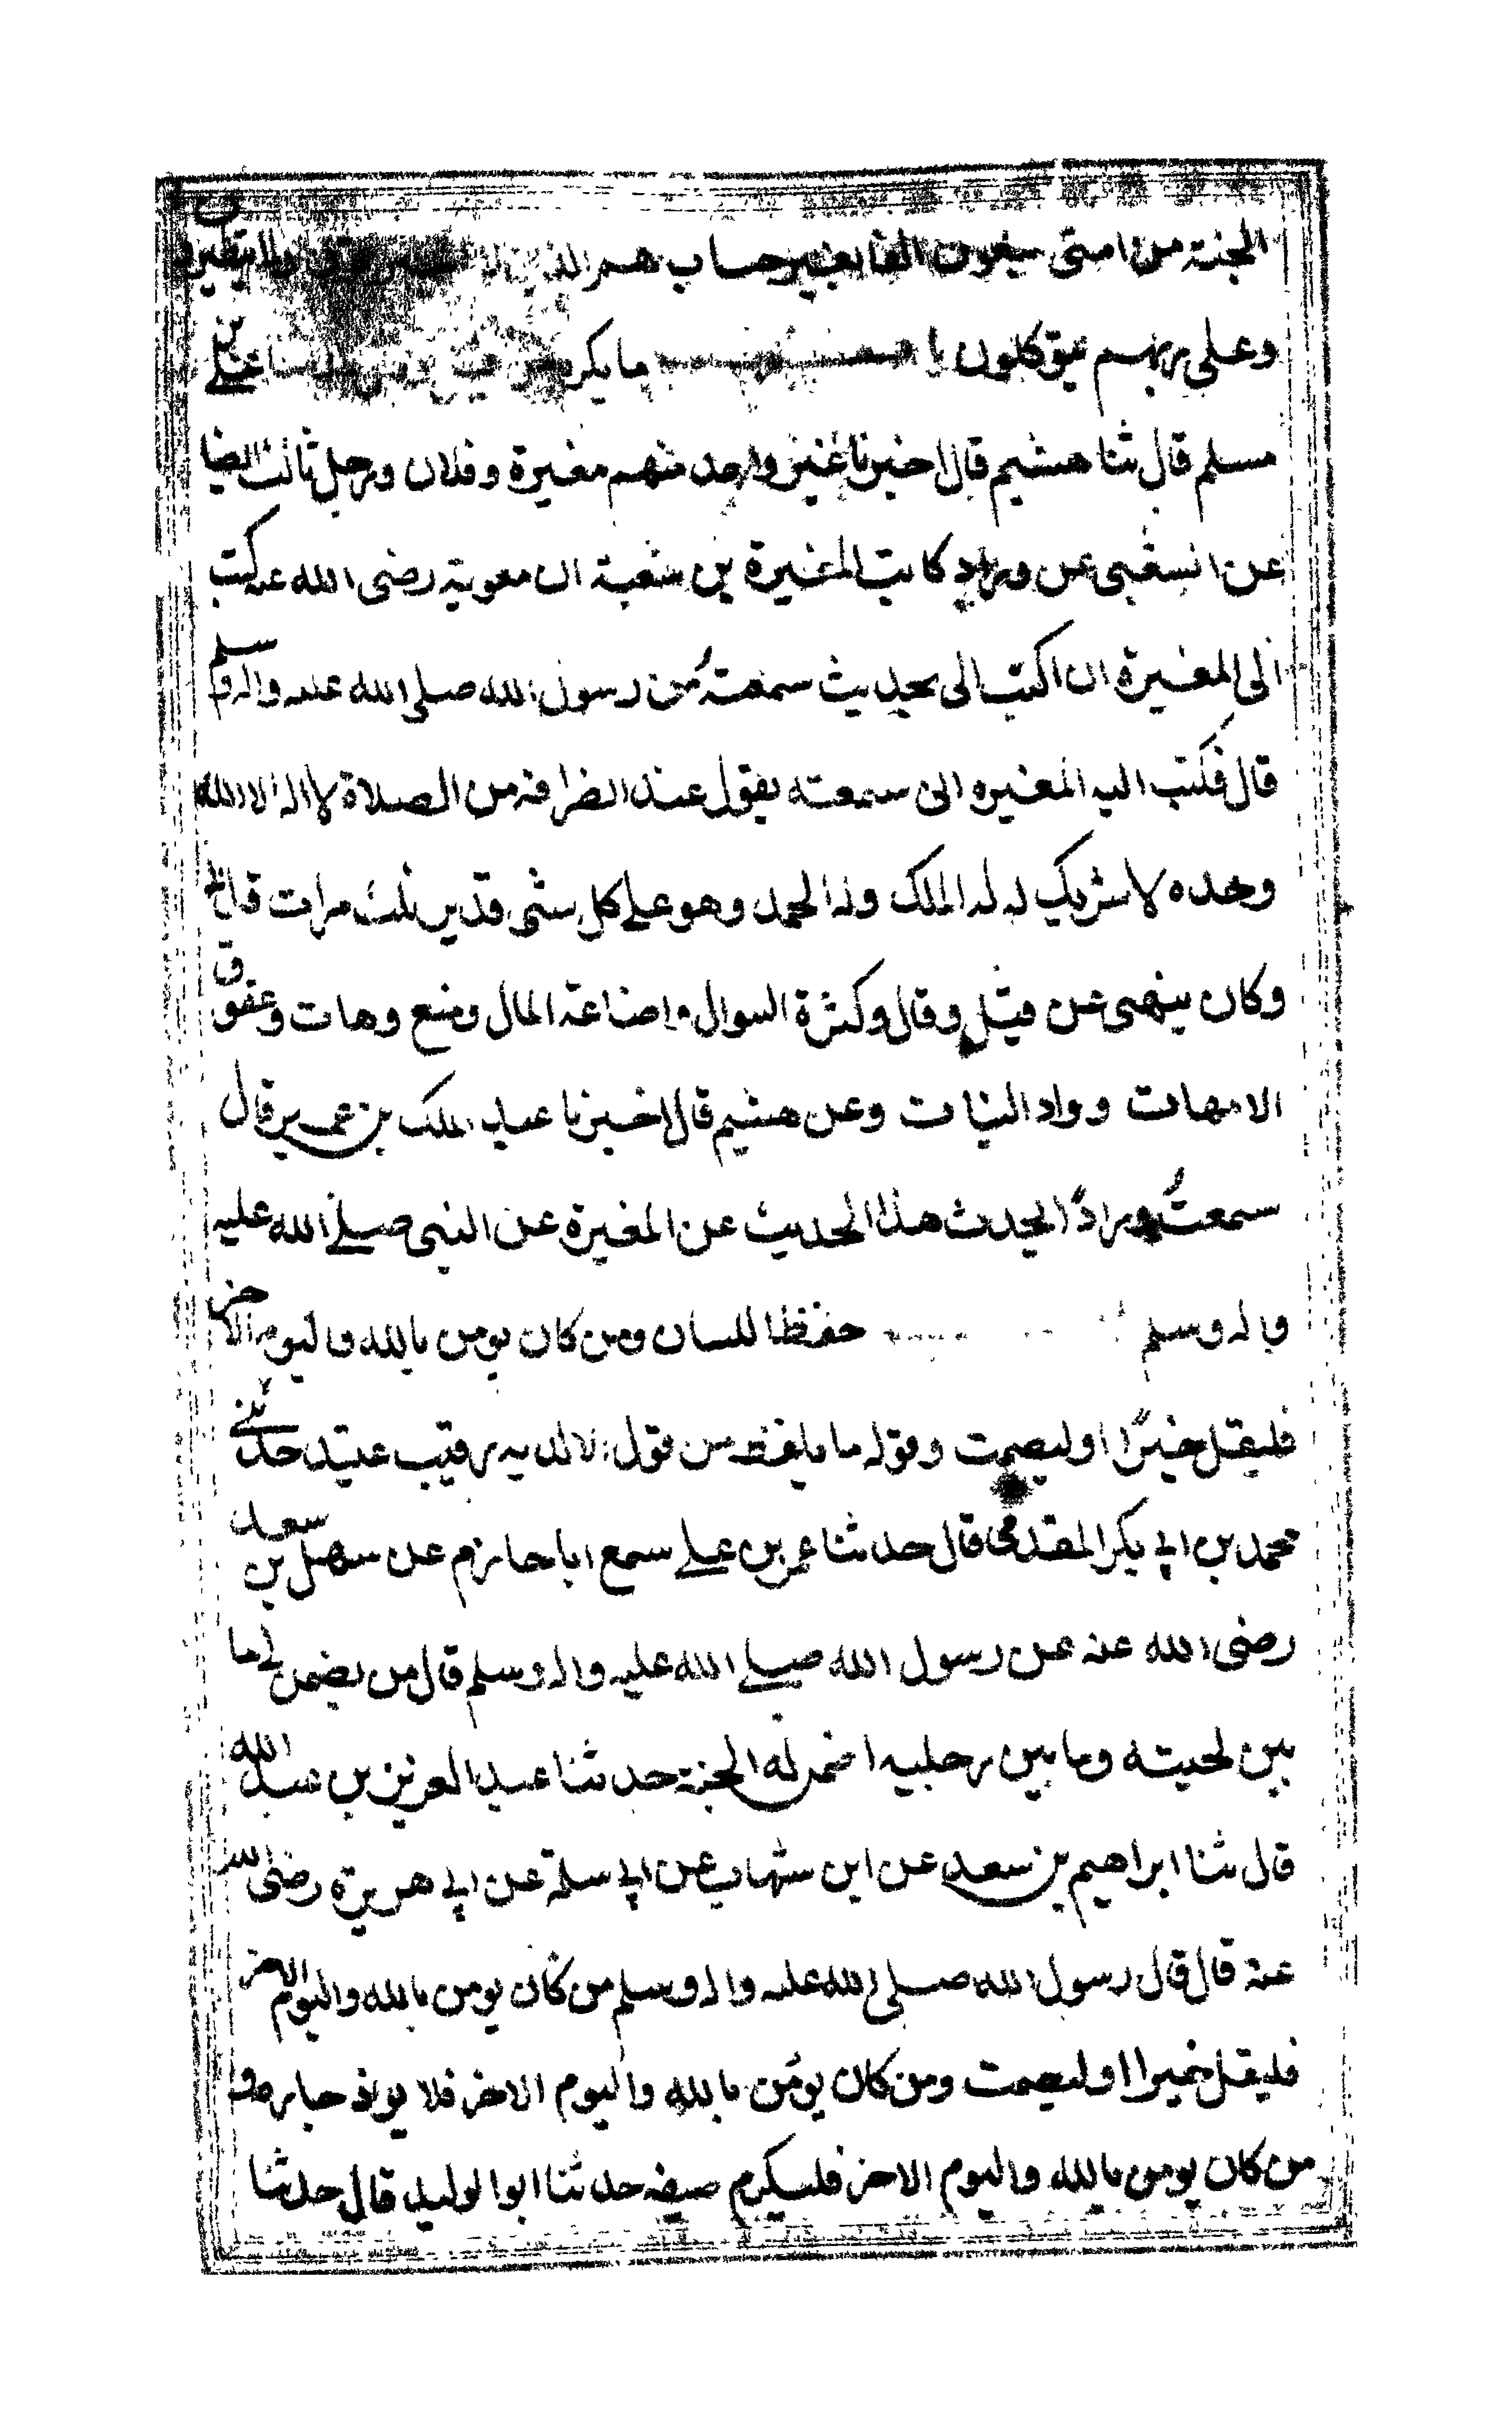 الجنة من امتى سبعون الفا بغير حساب هم الذين لا ولا يتطيرون
وعلى ربهم يتوكلون ما يكره من قيل وقال ثنا على بن
مسلم قال ثنا هشيم قال اخبرنا غير واحد منهم مغيرة وفلان ورجل ثالث ايضا
عن الشعبى عن وراد كاتب المغيرة بن شعبة ان معوية رضى الله عنه كتب
الى المغيرة ان اكتب الى بحديث سمعته من رسول الله صلى الله عليه واله وسلم
قال فكتب اليه المغيره انى سمعته يقول عند انصرافه من الصلاة لا اله الا الله
وحده لا شريك له له الملك وله الحمد وهو على كل شى قدير ثلث مرات قال
وكان ينهى عن قيل وقال وكثرة السوال واضاعة المال ومنع وهات وعقوق
الامهات وواد البنات وعن هشيم قال اخبرنا عبد الملك بن عمير قال
سمعت ورادًا يحدث هذا الحديث عن المغيرة عن النبى صلى الله عليه
واله وسلم حفظ اللسان ومن كان يومن بالله واليوم الاخر
فليقل خيرًا او ليصمت وقوله ما يلفظ من قول الا لديه رقيب عتيد حدثنى
محمد بن ابى بكر المقدمى قال حدثنا عمر بن على سمع ابا حازم عن سهل بن سعد
رضى الله عنه عن رسول الله صلى الله عليه واله وسلم قال من يضمن لى ما
بين لحيته وما بين رجليه اضمن له الجنة حدثنا عبد العزيز بن عبد الله
قال ثنا ابراهيم بن سعد عن ابن شهاب عن ابى سلمة عن ابى هريرة رضى الله
عنه قال قال رسول الله صلى الله عليه واله وسلم من كان يومن بالله واليوم الاخر
فليقل خيرا او ليصمت ومن كان يومن بالله واليوم الاخر فلا يوذ جاره و
من كان يومن بالله واليوم الاخر فليكرم ضيفه حدثنا ابو الوليد قال حدثنا